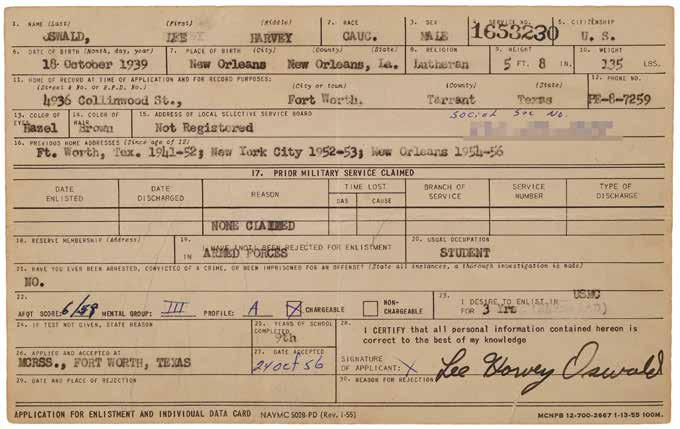 1. NAME (Last) (First) (Middle) 2. RACE 3. SEX 4. SERVICE NO. 5. CITIZENSHIP
OSWALD, LEE HARVEY CAUC. MALE 1653230 U. S.
6. DATE OF BIRTH (Month, day, year) 7. PLACE OF BIRTH (City) (County) (State) 8. RELIGION 9. HEIGHT 10. WEIGHT
18 October 1939 New Orleans New Orleans, La. Lutheran 5 FT. 8 IN. 135 LBS.
11. HOME OF RECORD AT TIME OF APPLICATION AND FOR RECORD PURPOSES: 12. PHONE NO.
(Street & No. or R.F.D. No.) (City or town) (County) (State)
4936 Collinwood St., Fort Worth. Tarrant Texas PE-8-7259
13. COLOR OF EYES 14. COLOR OF HAIR 15. ADDRESS OF LOCAL SELECTIVE SERVICE BOARD Social Sec No.
Hazel Brown Not Registered
16. PREVIOUS HOME ADDRESSES (Since age of 12)
Ft. Worth, Tex. 1941-52; New York City 1952-53; New Orleans 1954-56
17. PRIOR MILITARY SERVICE CLAIMED
DATE ENLISTED DATE DISCHARGED REASON TIME LOST BRANCH OF SERVICE SERVICE NUMBER TYPE OF DISCHARGE
DAS CAUSE
NONE CLAIMED
18. RESERVE MEMBERSHIP (Address) 19. I HAVE (NOT) BEEN REJECTED FOR ENLISTMENT 20. USUAL OCCUPATION
IN ARMED FORCES STUDENT
21. HAVE YOU EVER BEEN ARRESTED, CONVICTED OF A CRIME, OR BEEN IMPRISONED FOR AN OFFENSE? (State all instances, a thorough investigation is made)
NO.
22. 23. I DESIRE TO ENLIST IN USMC
AFQT SCORE: 6/59 MENTAL GROUP: III PROFILE: A X CHARGEABLE NON-CHARGEABLE FOR 3 Yrs
24. IF TEST NOT GIVEN, STATE REASON 25. YEARS OF SCHOOL COMPLETED 28. I CERTIFY that all personal information contained hereon is
9th correct to the best of my knowledge
26. APPLIED AND ACCEPTED AT 27. DATE ACCEPTED
MCRSS., FORT WORTH, TEXAS 24 Oct 56 SIGNATURE OF APPLICANT: X Lee Harvey Oswald
29. DATE AND PLACE OF REJECTION 30. REASON FOR REJECTION
APPLICATION FOR ENLISTMENT AND INDIVIDUAL DATA CARD NAVMC 5028-PD (Rev. 1-55) MCNPB 12-700-2667 1-13-55 100M.